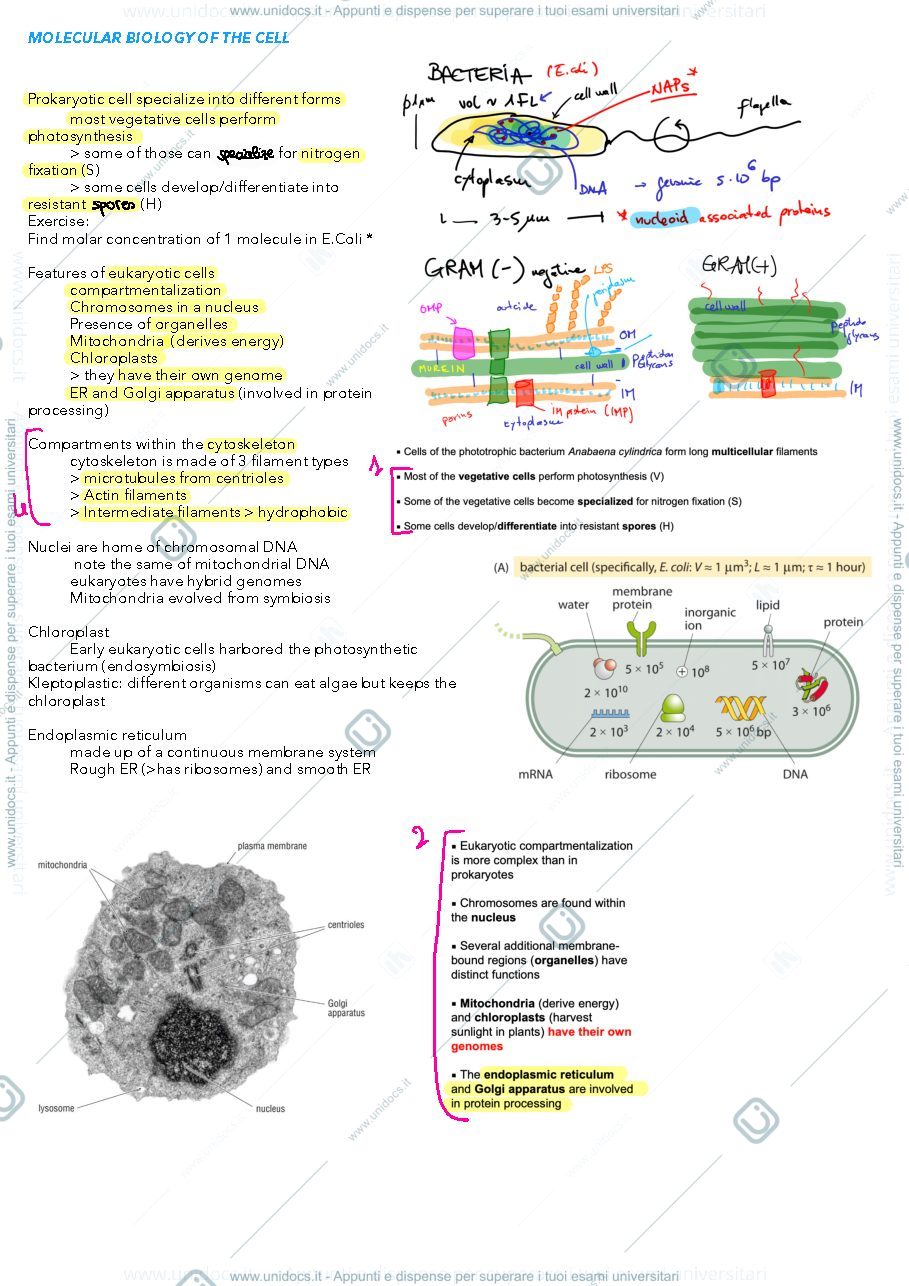 www.unidocs.it - Appunti e dispense per superare i tuoi esami universitari
MOLECULAR BIOLOGY OF THE CELL
Prokaryotic cell specialize into different forms
most vegetative cells perform
photosynthesis
> some of those can specialize for nitrogen
fixation (S)
> some cells develop/differentiate into
resistant spores (H)
Exercise:
Find molar concentration of 1 molecule in E.Coli *
Features of eukaryotic cells
compartmentalization
Chromosomes in a nucleus
Presence of organelles
Mitochondria (derives energy)
Chloroplasts
> they have their own genome
ER and Golgi apparatus (involved in protein
processing)
Compartments within the cytoskeleton
cytoskeleton is made of 3 filament types
> microtubules from centrioles
> Actin filaments
> Intermediate filaments > hydrophobic
Nuclei are home of chromosomal DNA
note the same of mitochondrial DNA
eukaryotes have hybrid genomes
Mitochondria evolved from symbiosis
Chloroplast
Early eukaryotic cells harbored the photosynthetic
bacterium (endosymbiosis)
Kleptoplastic: different organisms can eat algae but keeps the
chloroplast
Endoplasmic reticulum
made up of a continuous membrane system
Rough ER (>has ribosomes) and smooth ER
BACTERIA (E.coli)
vol ~ 1FL
cell wall
NAPs*
flagella
cytoplasm
DNA → genome 5·10⁶ bp
3-5 μm
* nucleoid associated proteins
GRAM (-) negative
LPS
periplasm
OMP
outside
OM
MUREIN
cell wall
Peptido
Glycans
IM
porins
IM protein (IMP)
cytoplasm
GRAM(+)
cell wall
peptido
glycans
IM
1
▪ Cells of the phototrophic bacterium Anabaena cylindrica form long multicellular filaments
▪ Most of the vegetative cells perform photosynthesis (V)
▪ Some of the vegetative cells become specialized for nitrogen fixation (S)
▪ Some cells develop/differentiate into resistant spores (H)
(A) bacterial cell (specifically, E. coli: V ≈ 1 μm³; L ≈ 1 μm; τ ≈ 1 hour)
water
membrane
protein
inorganic
ion
lipid
protein
5 × 10⁵
+ 10⁸
5 × 10⁷
2 × 10¹⁰
3 × 10⁶
2 × 10³
2 × 10⁴
5 × 10⁶ bp
mRNA
ribosome
DNA
plasma membrane
mitochondria
centrioles
Golgi
apparatus
lysosome
nucleus
2
▪ Eukaryotic compartmentalization
is more complex than in
prokaryotes
▪ Chromosomes are found within
the nucleus
▪ Several additional membrane-
bound regions (organelles) have
distinct functions
▪ Mitochondria (derive energy)
and chloroplasts (harvest
sunlight in plants) have their own
genomes
▪ The endoplasmic reticulum
and Golgi apparatus are involved
in protein processing
www.unidocs.it - Appunti e dispense per superare i tuoi esami universitari
www.unidocs.it - Appunti e dispense per superare i tuoi esami universitari
www.unidocs.it - Appunti e dispense per superare i tuoi esami universitari